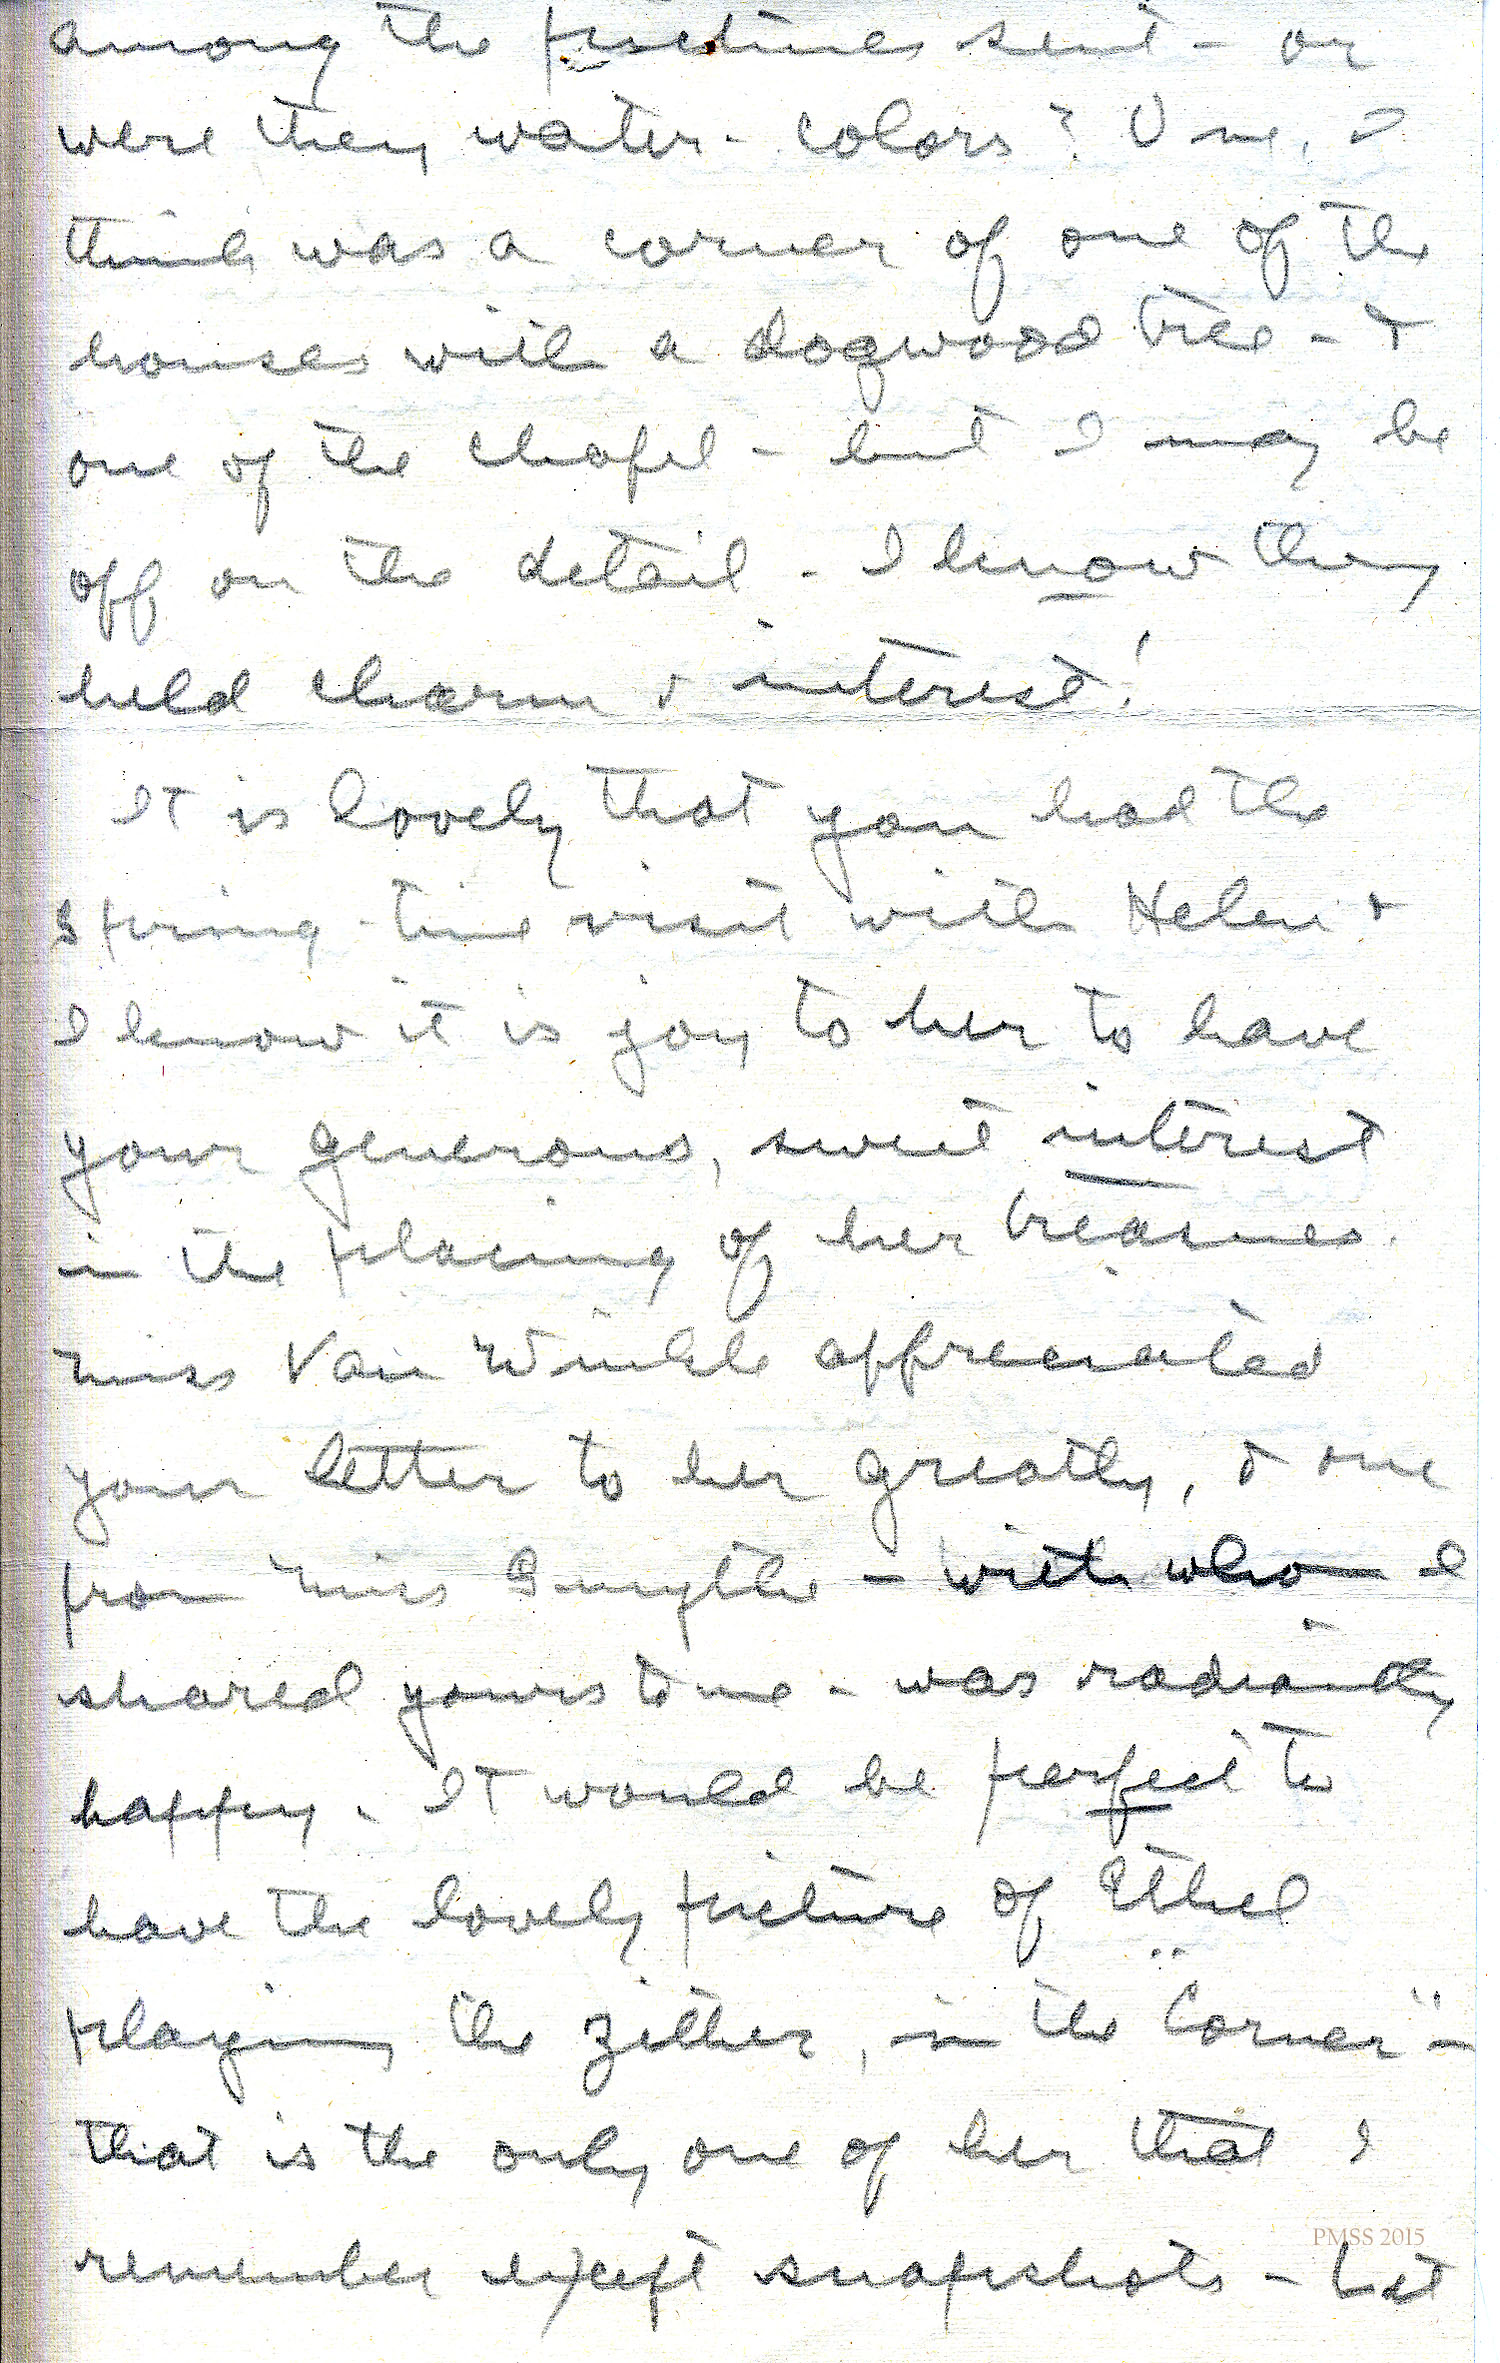 among the pictures sent - or
were they water-colors? One, I
think was a corner of one of the
houses with a dogwood tree - &
one of the chapel - but I may be
off on the detail - I know they
held charm & interest!
It is lovely that you had the
spring-time visit with Helen &
I know it is joy to her to have
your generous, sweet interest
in the placing of her treasures.
Miss Van Winkle appreciated
your letter to her greatly, & one
from Miss Smythe - with whom I
shared yours to me - was radiantly
happy. It would be perfect to
have the lovely picture of Ethel
playing the zither, in the "Corner" -
that is the only one of her that I
remember except snapshots - but
PMSS 2015